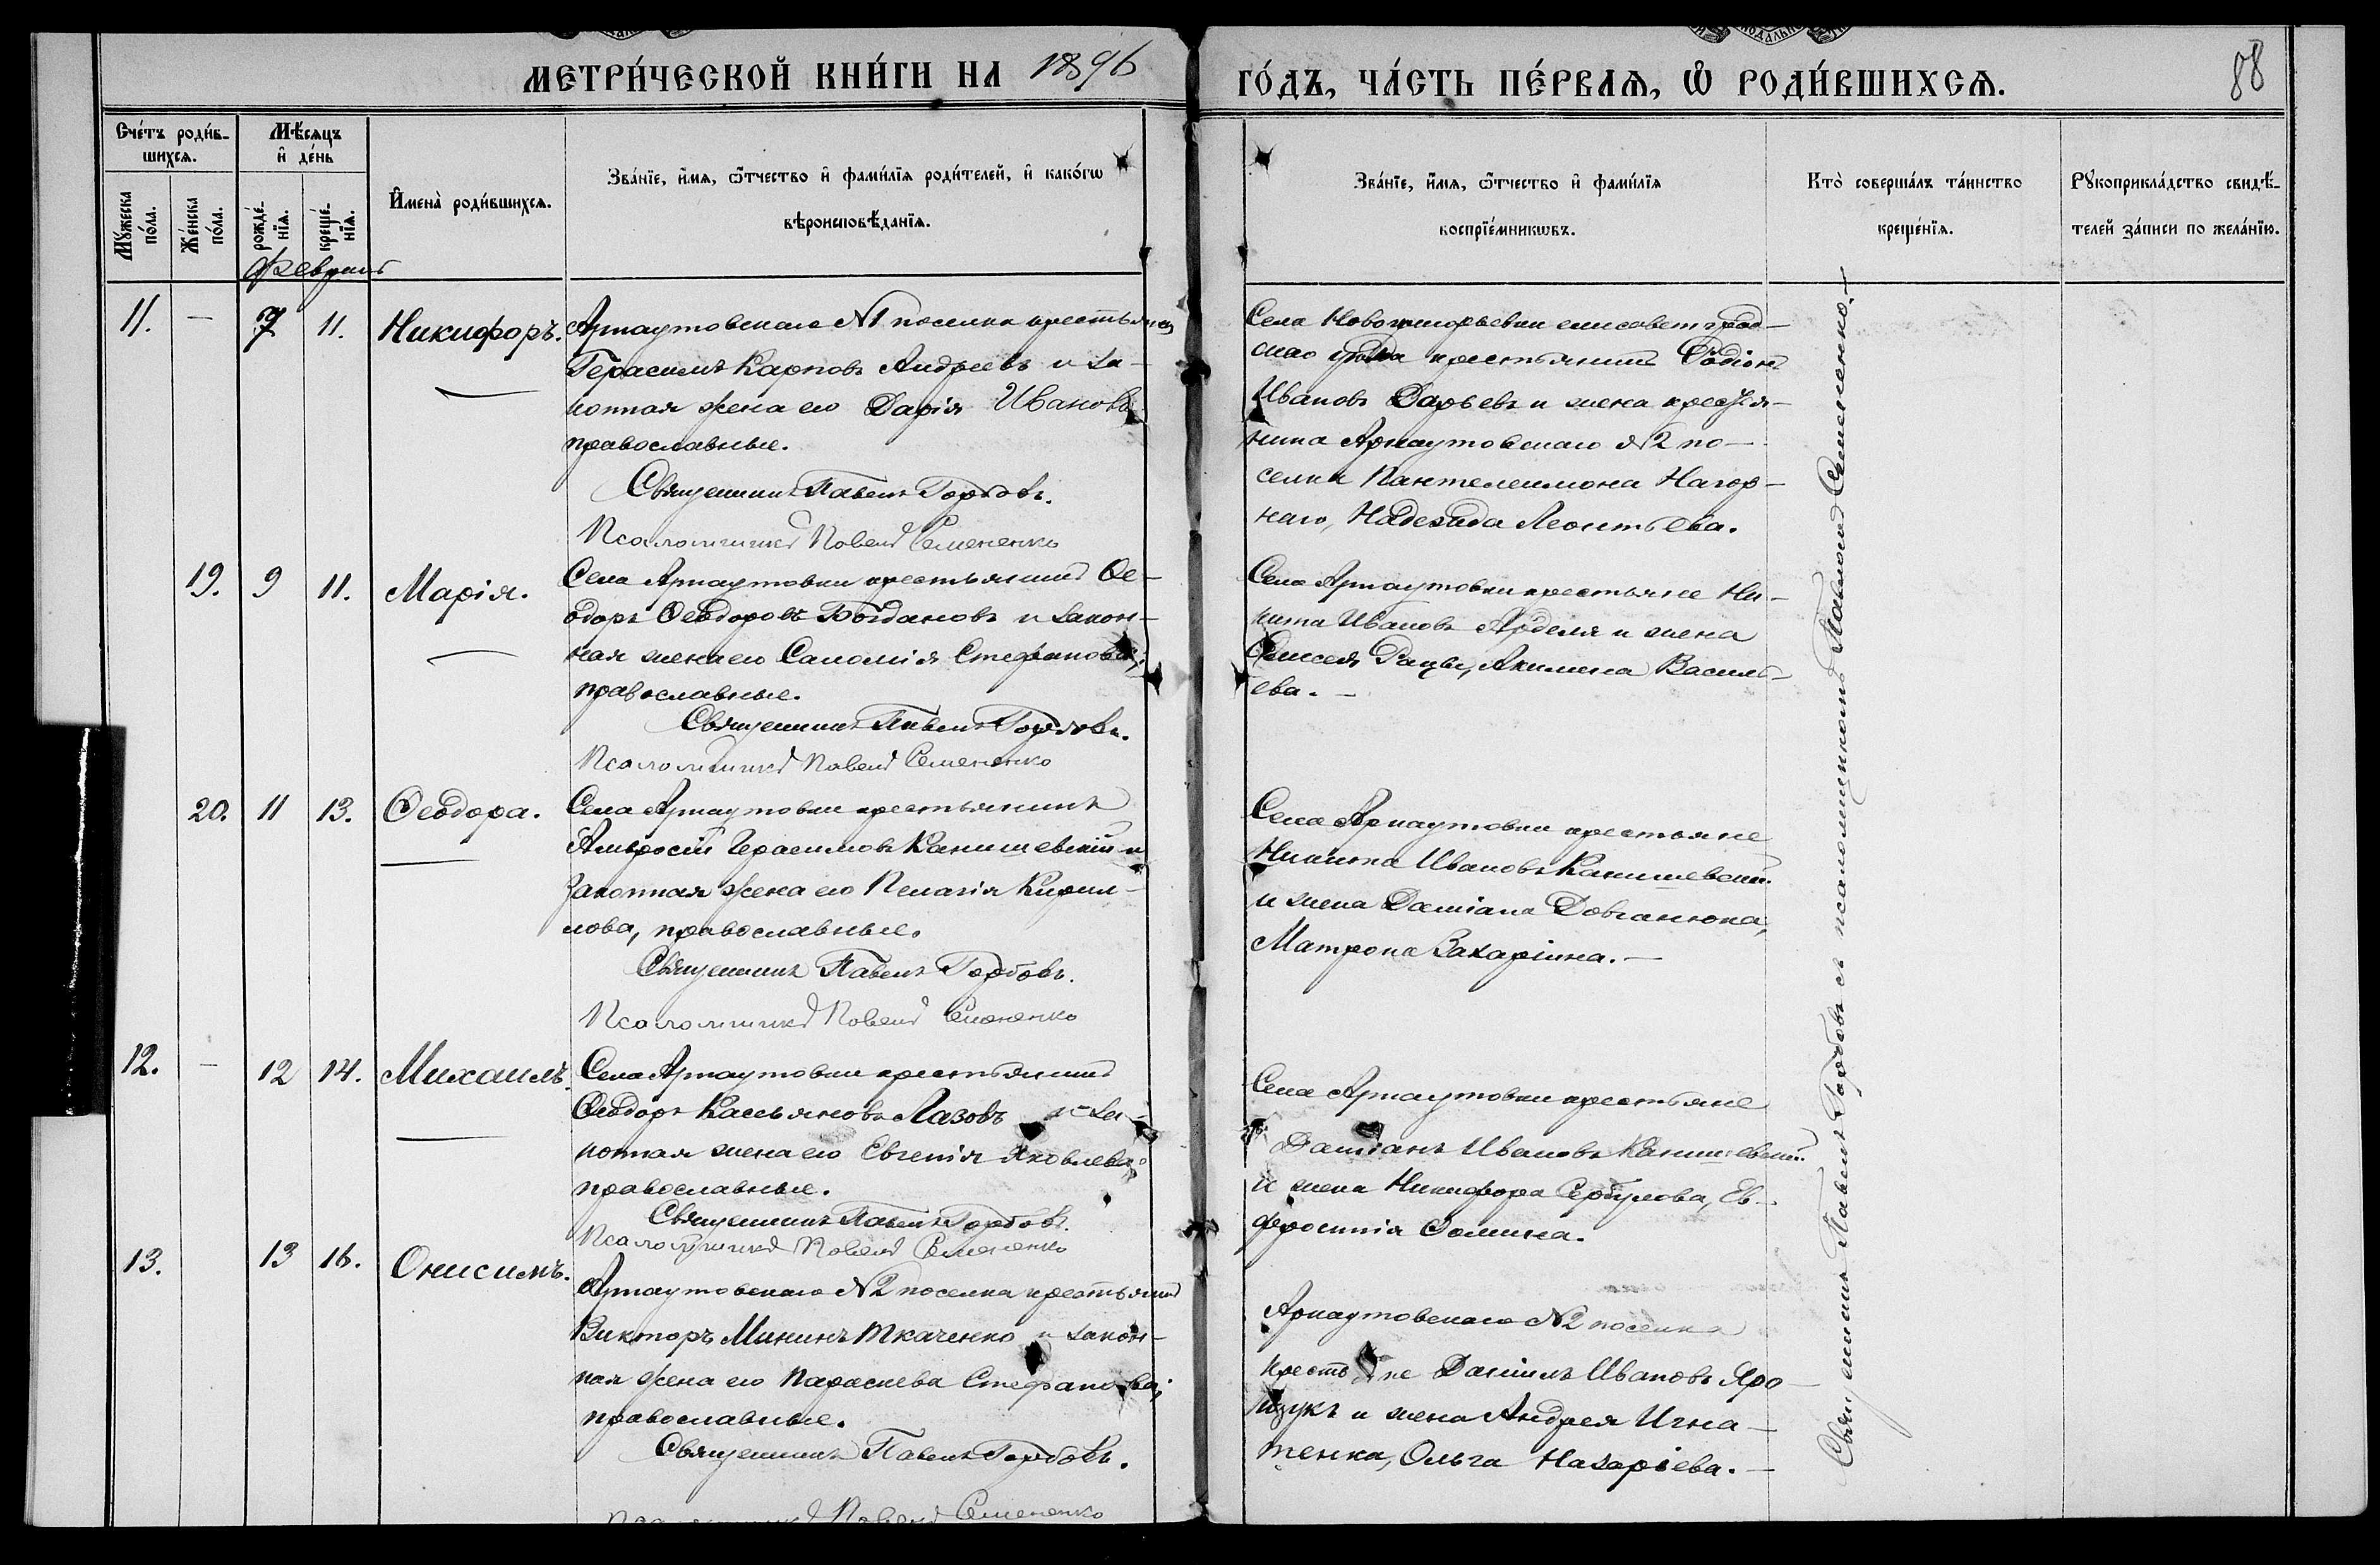 МЕТРИ́ЧЕСКОЙ КНИ́ГИ НА 1896 ГО́ДЪ, ЧА́СТЬ ПЕ́РВАѦ, Ѡ҆ РОДИ́ВШИХСѦ.
88
Сче́тъ роди́в-
шихсѧ.
Мꙋ́жеска
по́ла.
Же́нска
по́ла.
Мѣ́сѧцъ
и҆ де́нь
рожде́-
нїѧ.
креще́-
нїѧ.
Февраль
И҆мена̀ роди́вшихсѧ.
Зва́нїе, и҆́мѧ, ѻ҆́тчество и҆ фами́лїѧ роди́телей, и҆ како́гѡ
вѣроисповѣ́данїѧ.
Зва́нїе, и҆́мѧ, ѻ҆́тчество и҆ фами́лїѧ
воспрїе́мникѡвъ.
Кто̀ соверша́лъ та́инство
креще́нїѧ.
Рꙋкоприкла́дство свидѣ́-
телей за́писи по жела́нїю.
11. — 7 11. Никифоръ.
Арнаутовскаго №1 поселка крестьянинъ
Герасимъ Карповъ Андреевъ и за-
конная жена его Дарія Иванова
православные.
Священникъ Павелъ Горбовъ.
Псаломщикъ Павелъ Семененко
Села Новогригорьевки елисаветград-
скаго уѣзда крестьянинъ Родіонъ
Ивановъ Дарьевъ и жена крестья-
нина Арнаутовскаго №2 по-
селка Пантелеимона Нагор-
наго, Надежда Леонтьева.
19. 9 11. Марія.
Села Арнаутовки крестьянинъ Ѳе-
одоръ Ѳеодоровъ Богдановъ и закон-
ная жена его Саломія Стефанова,
православные.
Священникъ Павелъ Горбовъ.
Псаломщикъ Павелъ Семененко
Села Арнаутовки крестьяне Ни-
кита Ивановъ Арделя и жена
Елисея Рацы, Акилина Василь-
ева. —
20. 11 13. Ѳеодора.
Села Арнаутовки крестьянинъ
Амвросій Герасимовъ Канишевскій и
законная жена его Пелагія Кирил-
лова, православные.
Священникъ Павелъ Горбовъ.
Псаломщикъ Павелъ Семененко
Села Арнаутовки крестьяне
Никита Ивановъ Канишевскій
и жена Даміана Довганюка,
Матрона Захаріина. —
12. — 12 14. Михаилъ.
Села Арнаутовки крестьянинъ
Ѳеодоръ Касьяновъ Лазовъ и за-
конная жена его Евгенія Яковлева
православные.
Священникъ Павелъ Горбовъ.
Псаломщикъ Павелъ Семененко
Села Арнаутовки крестьяне
Даміанъ Ивановъ Канишевскій
и жена Никифора Сербулова, Ев-
фросинія Ѳомина.
13. 13 16. Онисимъ.
Арнаутовскаго №2 поселка крестьянинъ
Викторъ Мининъ Ткаченко и закон-
ная жена его Параскева Стефанова,
православные.
Священникъ Павелъ Горбовъ.
Псаломщикъ Павелъ Семененко
Арнаутовскаго №2 поселка
крестьяне Даніилъ Ивановъ Яро-
щукъ и жена Андрея Игна-
тенка, Ольга Назаріева. —
Священникъ Павелъ Горбовъ съ псаломщикомъ Павломъ Семененко. —